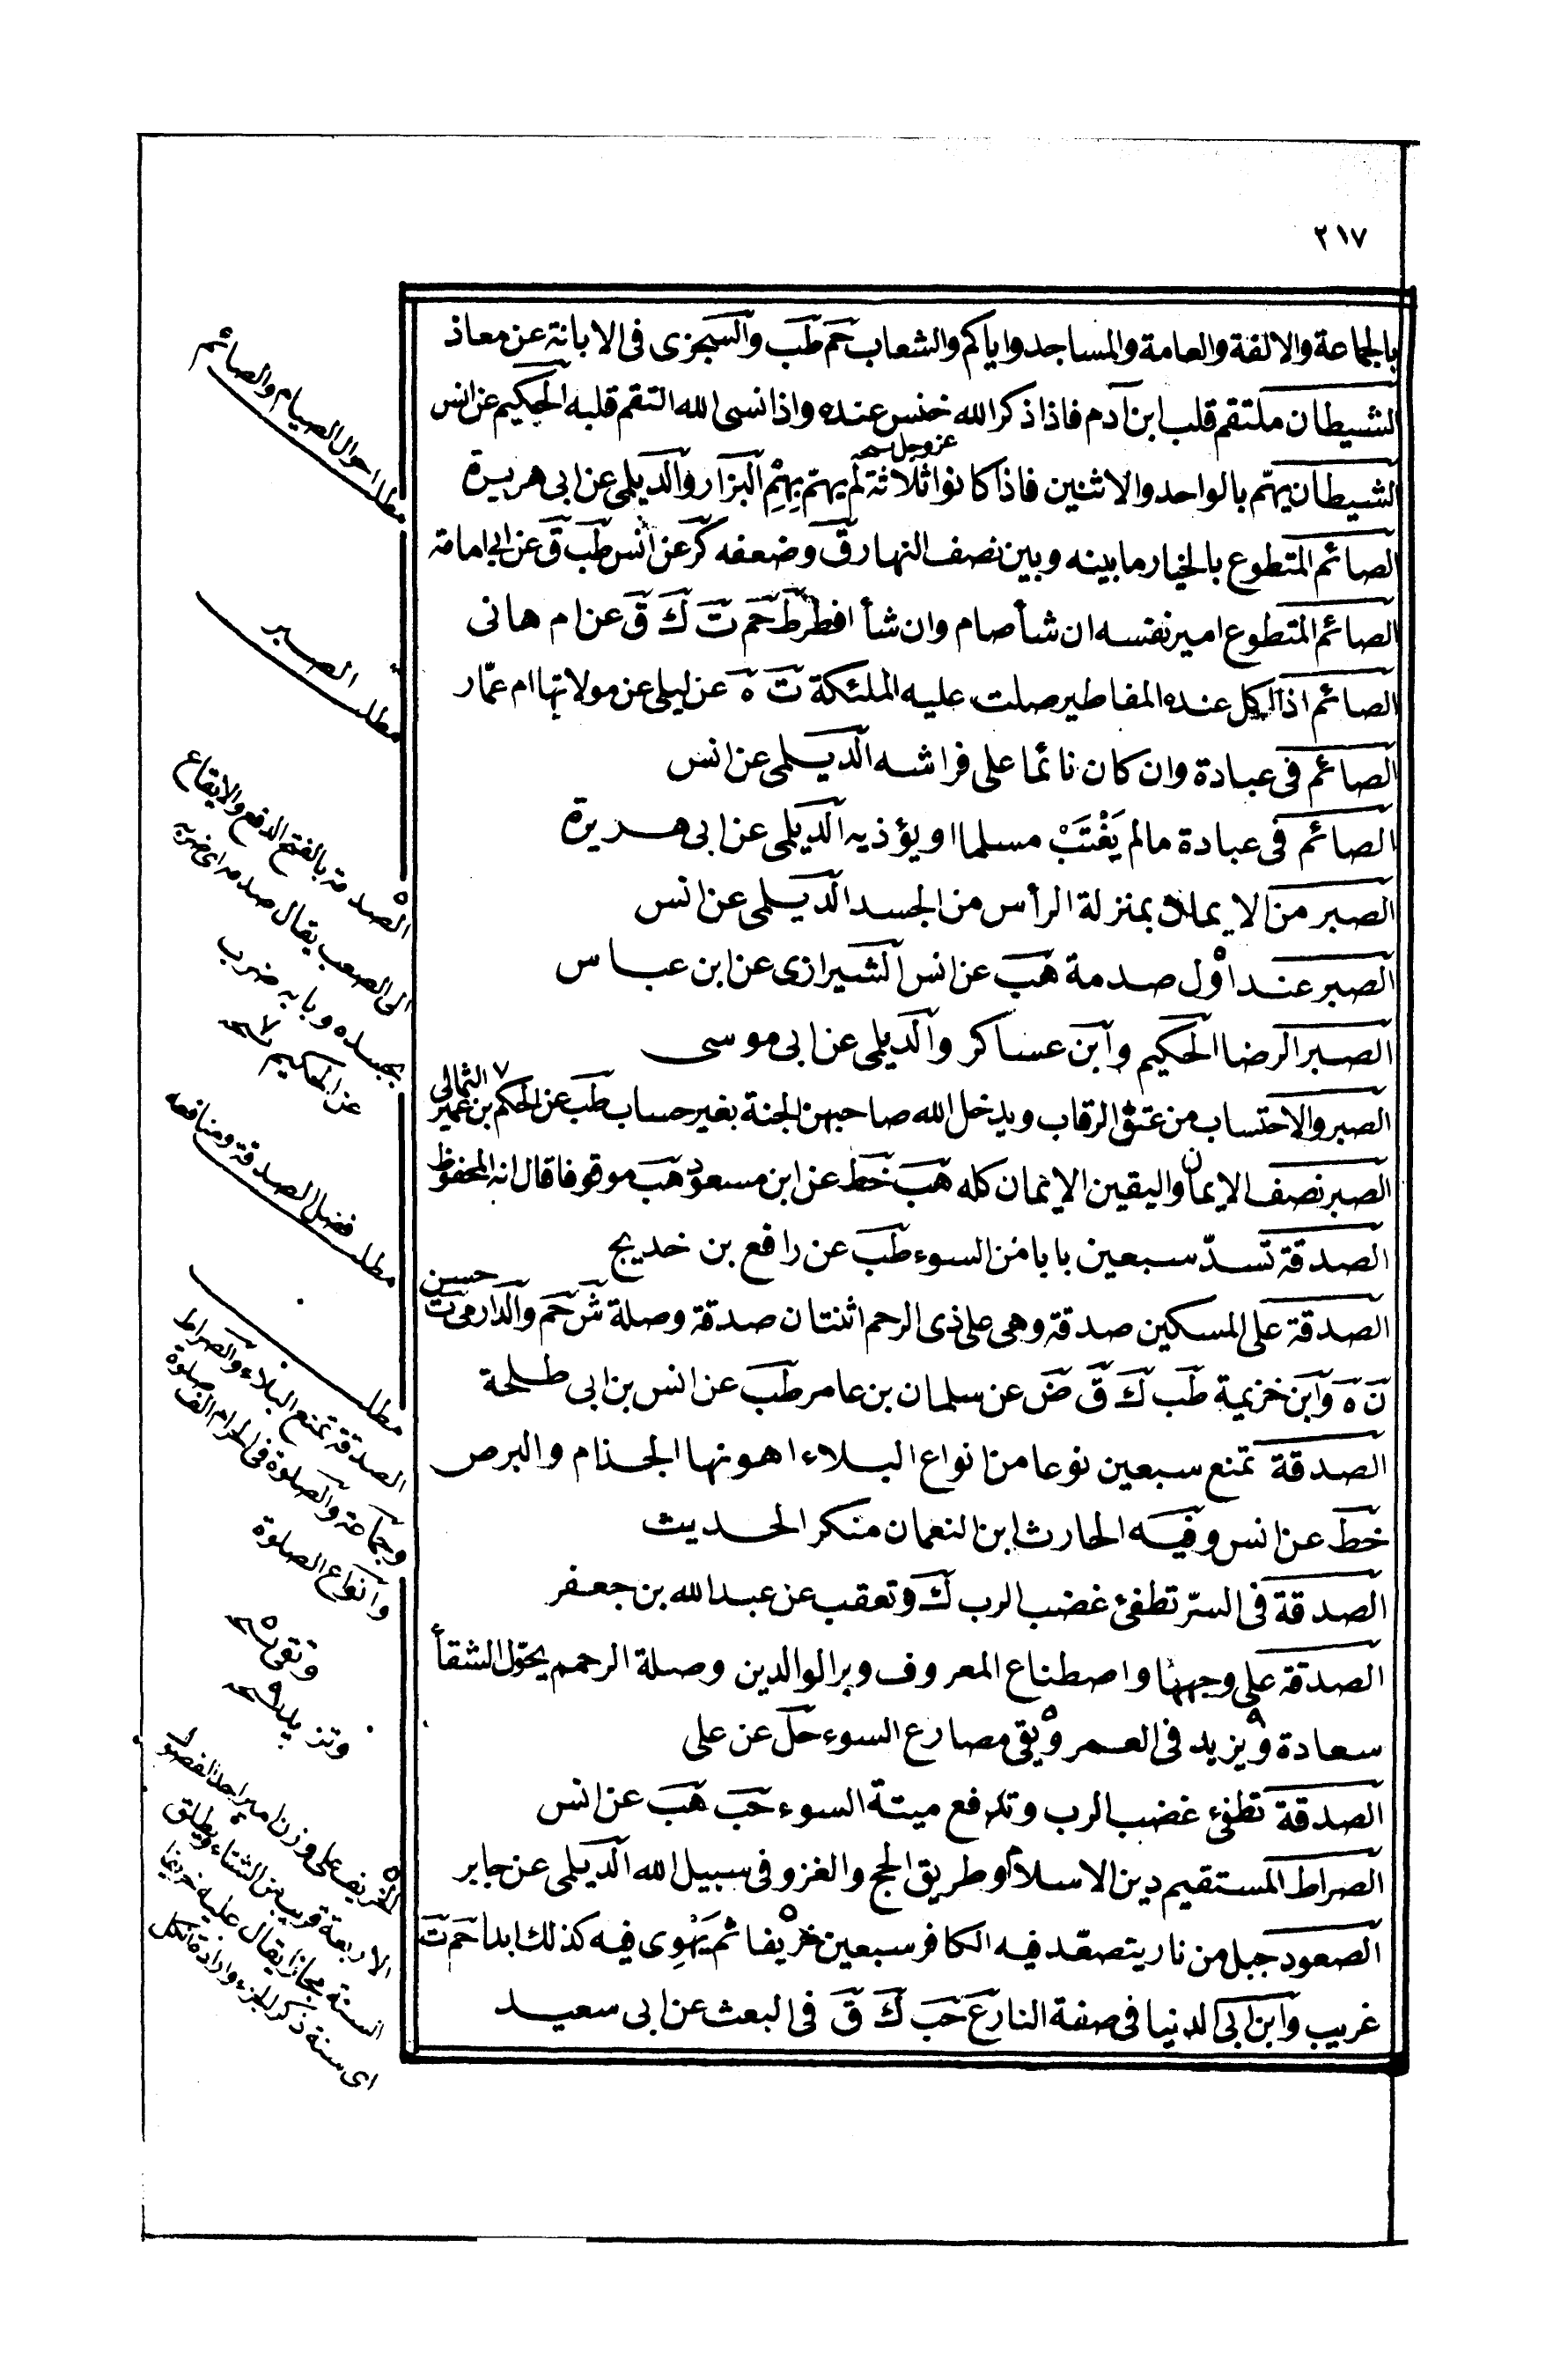 ٢١٧
بالجماعة والالفة والعامة والمساجد واياكم والشعاب حم طب والسجزى فى الابانة عن معاذ
الشيطان ملتقم قلب ابن آدم فاذا ذكر الله خنس عنده واذا نسى الله التقم قلبه الحكيم عن انس
عز وجل
الشيطان يهتم بالواحد والاثنين فاذا كانوا ثلاثة لم يهتم بهم البزار والديلمى عن ابى هريرة
الصائم المتطوع بالخيار ما بينه وبين نصف النهار ق وضعفه كر عن انس طب ق عن ابى امامة
الصائم المتطوع امير نفسه ان شأ صام وان شأ افطر ط حم ت ك ق عن ام هانى
الصائم اذا اكل عنده المفاطير صلت عليه الملئكة ت ه عن ليلى عن مولاتها ام عمّار
الصائم فى عبادة وان كان نائما على فراشه الديلمى عن انس
الصائم فى عبادة مالم يَغْتَبْ مسلما او يؤذيه الديلمى عن ابى هريرة
الصبر من الايمان بمنزلة الرأس من الجسد الديلمى عن انس
الصبر عند اول صدمة هب عن انس الشيرازى عن ابن عباس
الصبر الرضا الحكيم وابن عساكر والديلمى عن ابى موسى
٧ الثمالى
الصبر والاحتساب من عتق الرقاب ويدخل الله صاحبهن الجنة بغير حساب طب عن الحكم بن عمير
الصبر نصف الايمان واليقين الايمان كله هب خط عن ابن مسعود هب موقوفا قال انه المحفوظ
الصدقة تسدّ سبعين بابا من السوء طب عن رافع بن خديج
حسن
الصدقة على المسكين صدقة وهى على ذى الرحم اثنتان صدقة وصلة ش حم والدارمى ت
ن ه وابن خزيمة طب ك ق ض عن سلمان بن عامر طب عن انس بن ابى طلحة
الصدقة تمنع سبعين نوعا من انواع البلاء اهونها الجذام والبرص
خط عن انس وفيه الحارث ابن النعمان منكر الحديث
الصدقة فى السرّ تطفئ غضب الرب ك وتعقب عن عبد الله بن جعفر
الصدقة على وجهها واصطناع المعروف وبر الوالدين وصلة الرحم يحوّل الشقأ
سعادة ويزيد فى العمر ويقى مصارع السوء حل عن على
الصدقة تطفئ غضب الرب وتدفع ميتة السوء حب هب عن انس
الصراط المستقيم دين الاسلام وطريق الحج والغزو فى سبيل الله الديلمى عن جابر
الصعود جبل من نار يتصعّد فيه الكافر سبعين خريفا ثم يَهْوِى فيه كذلك ابدا حم ت
غريب وابن ابى الدنيا فى صفة النار ع حب ك ق فى البعث عن ابى سعيد
مطلب احوال الصيام والصائم
مطلب الصبر
الصدمة بالفتح الدفع والايقاع
الى الصعب يقال صدمه اى ضربه
بجسده وبابه ضرب
عن الحكيم ٧
مطلب فضل الصدقة ومنافعه
مطلب
الصدقة تمنع البلاء والصراط
وجماعة والصلوة فى الحرام الف صلوة
وانواع الصلوة
وتقى
وتزيد
الخريف على وزن امير احد الفصول
الاربعة قريب من الشتاء ويطلق
السنة مجازا يقال عليه خريفا
اى سنة ذكر الجزء وارادة الكل